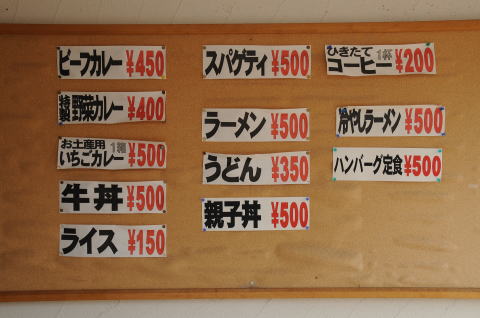 ビーフカレー ¥450
野菜カレー ¥400
お土産用 1箱
いちごカレー ¥500
牛丼 ¥500
ライス ¥150
スパゲティ ¥500
ラーメン ¥500
うどん ¥350
親子丼 ¥500
ひきたて 1杯
コーヒー ¥200
冷やしラーメン ¥500
ハンバーグ定食 ¥500